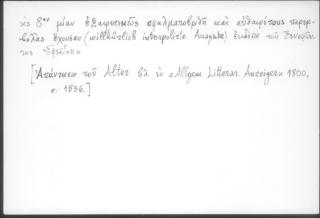 εἰς 8ον μίαν ἐξαιρετικῶς σφαλματοβριθῆ καὶ αὐθαιρέτους παρεμ-
βολὰς ἔχουσαν (willkürlich interpolirte Ausgabe) ἔκδοσιν τοῦ
της
[Ἀπάντησιν τοῦ Alter βλ. ἐν «Allgem. Litterar. Anzeiger» 1800,
σ. 1536.]